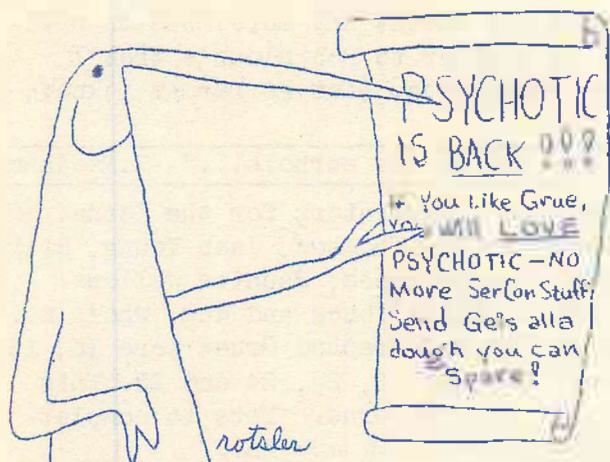 PSYCHOTIC
IS BACK !!!
If You Like Grue,
you will LOVE
PSYCHOTIC — NO
More SerCon Stuff!
Send Geis alla
dough you can
Spare!
rotsler